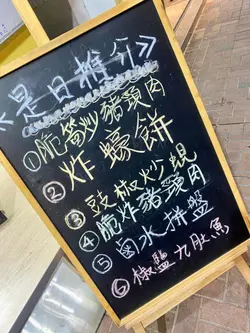 《是日推介》
①脆筍炒豬頸肉
②炸蠔餅
③豉椒炒蜆
④脆炸豬頸肉
⑤鹵水拼盤
⑥椒鹽九肚魚